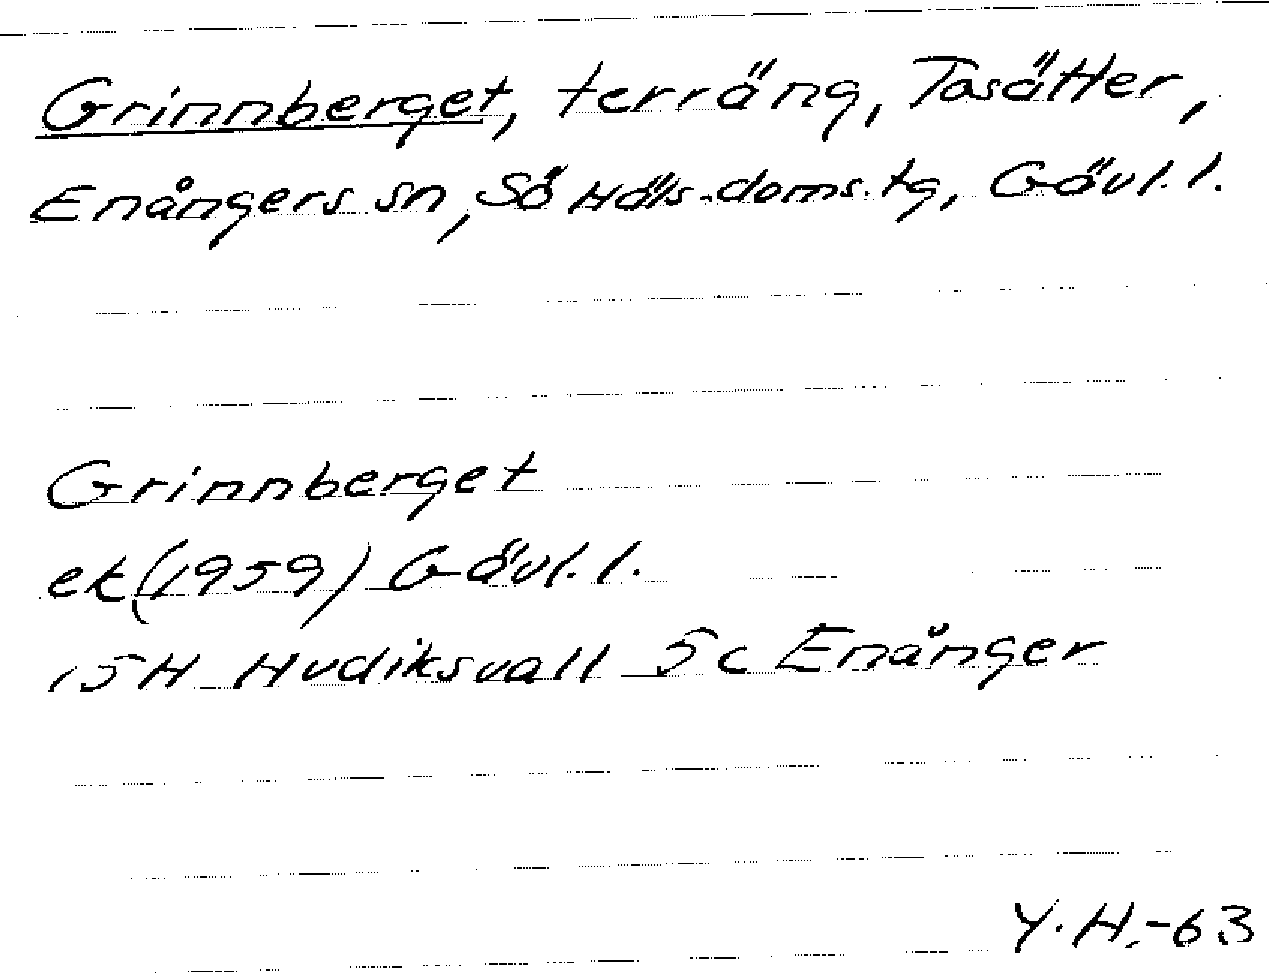 Grinnberget, terräng, Tosätter,
Enångers sn, Sö Häls. doms. tg, Gävl. l.
Grinnberget
ek (1959) Gävl. l.
15H Hudiksvall 5c Enånger
Y.H.-63